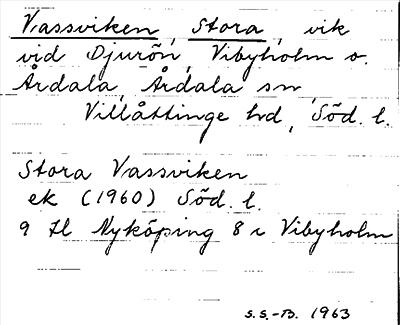 Vassviken, Stora, vik
vid Djurön, Vibyholm o.
Årdala, Årdala sn,
Villåttinge hd, Söd. l.
Stora Vassviken
ek (1960) Söd. l.
9 H Nyköping 8 i Vibyholm
S.S.-B. 1963